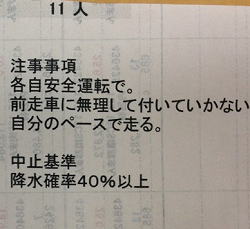 11 人
注事事項
各自安全運転で。
前走車に無理して付いていかない
自分のペースで走る。
中止基準
降水確率40%以上